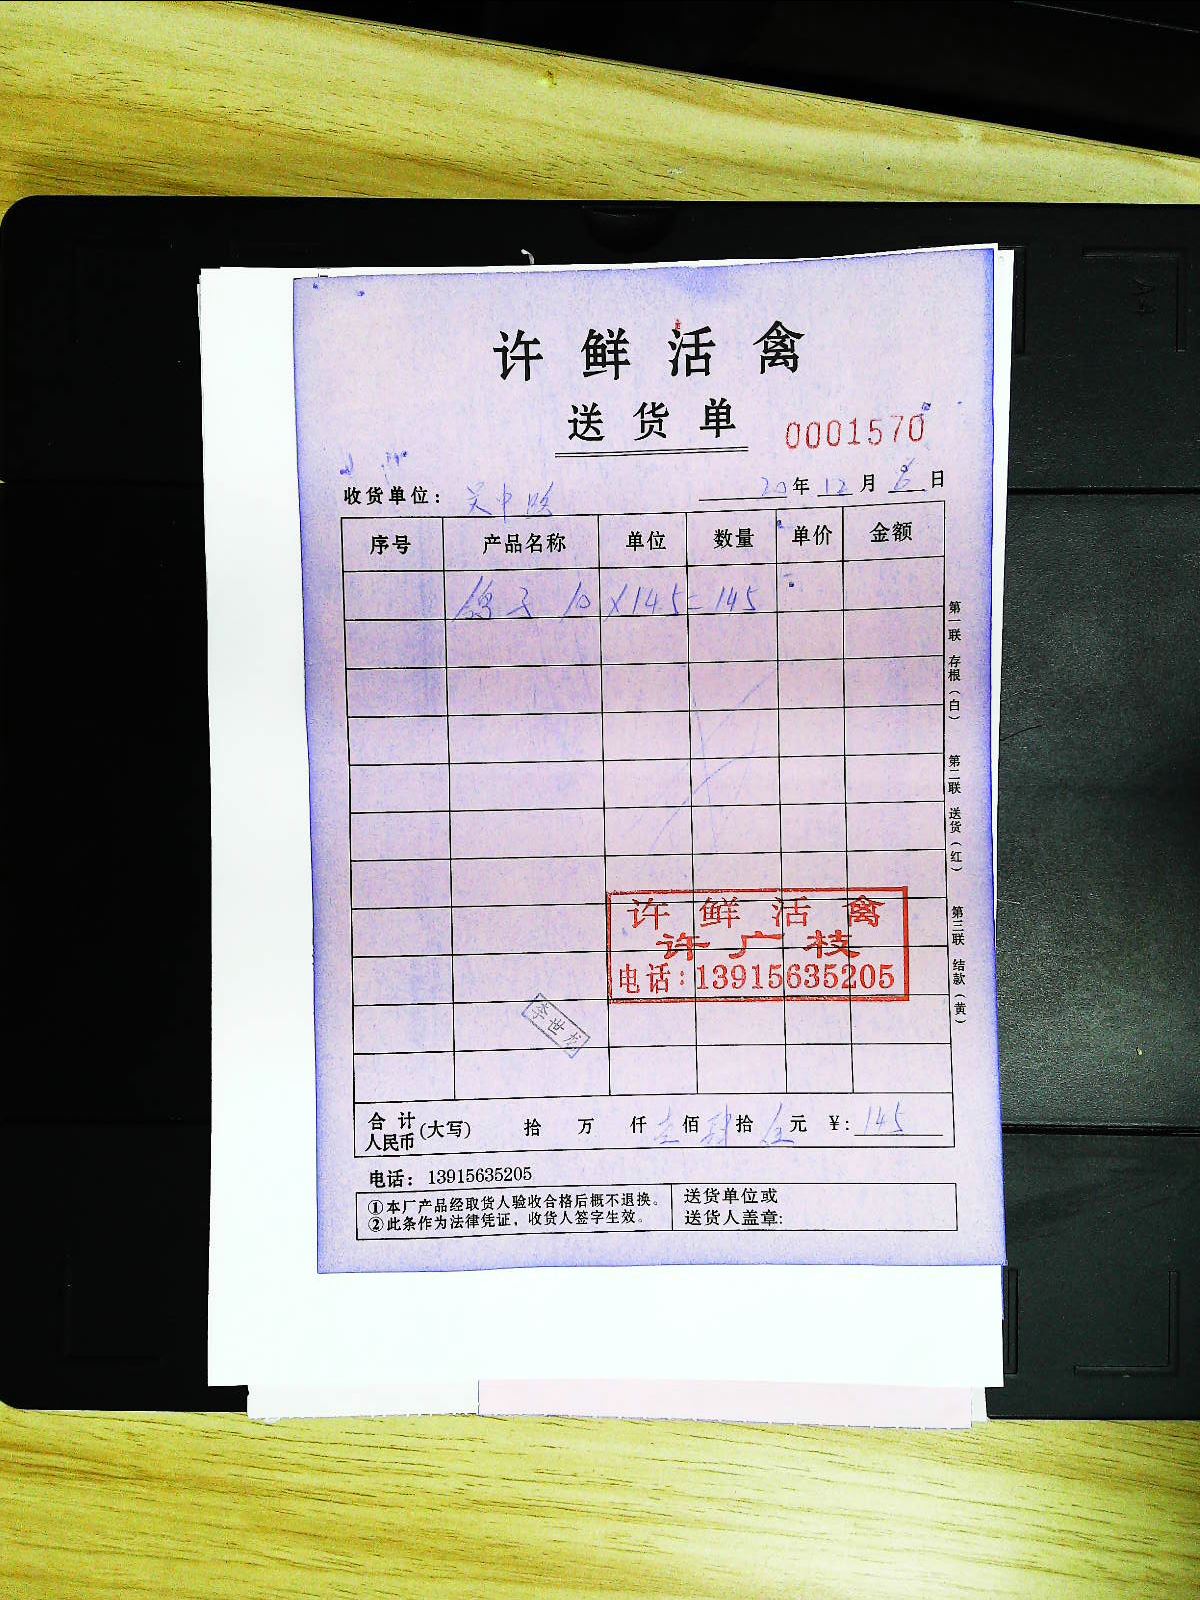 许鲜活禽
送货单
0001570
收货单位: 吴中
20年12月日
序号 产品名称 单位 数量 单价 金额
鸽子 10×145=145
第一联 存根(白)
第二联 送货(红)
第三联 结款(黄)
许鲜活禽
许广枝
电话:13915635205
李世龙
合计人民币(大写) 拾 万 仟 壹佰肆拾伍元 ¥:145
电话: 13915635205
①本厂产品经取货人验收合格后概不退换。
②此条作为法律凭证,收货人签字生效。
送货单位或
送货人盖章: